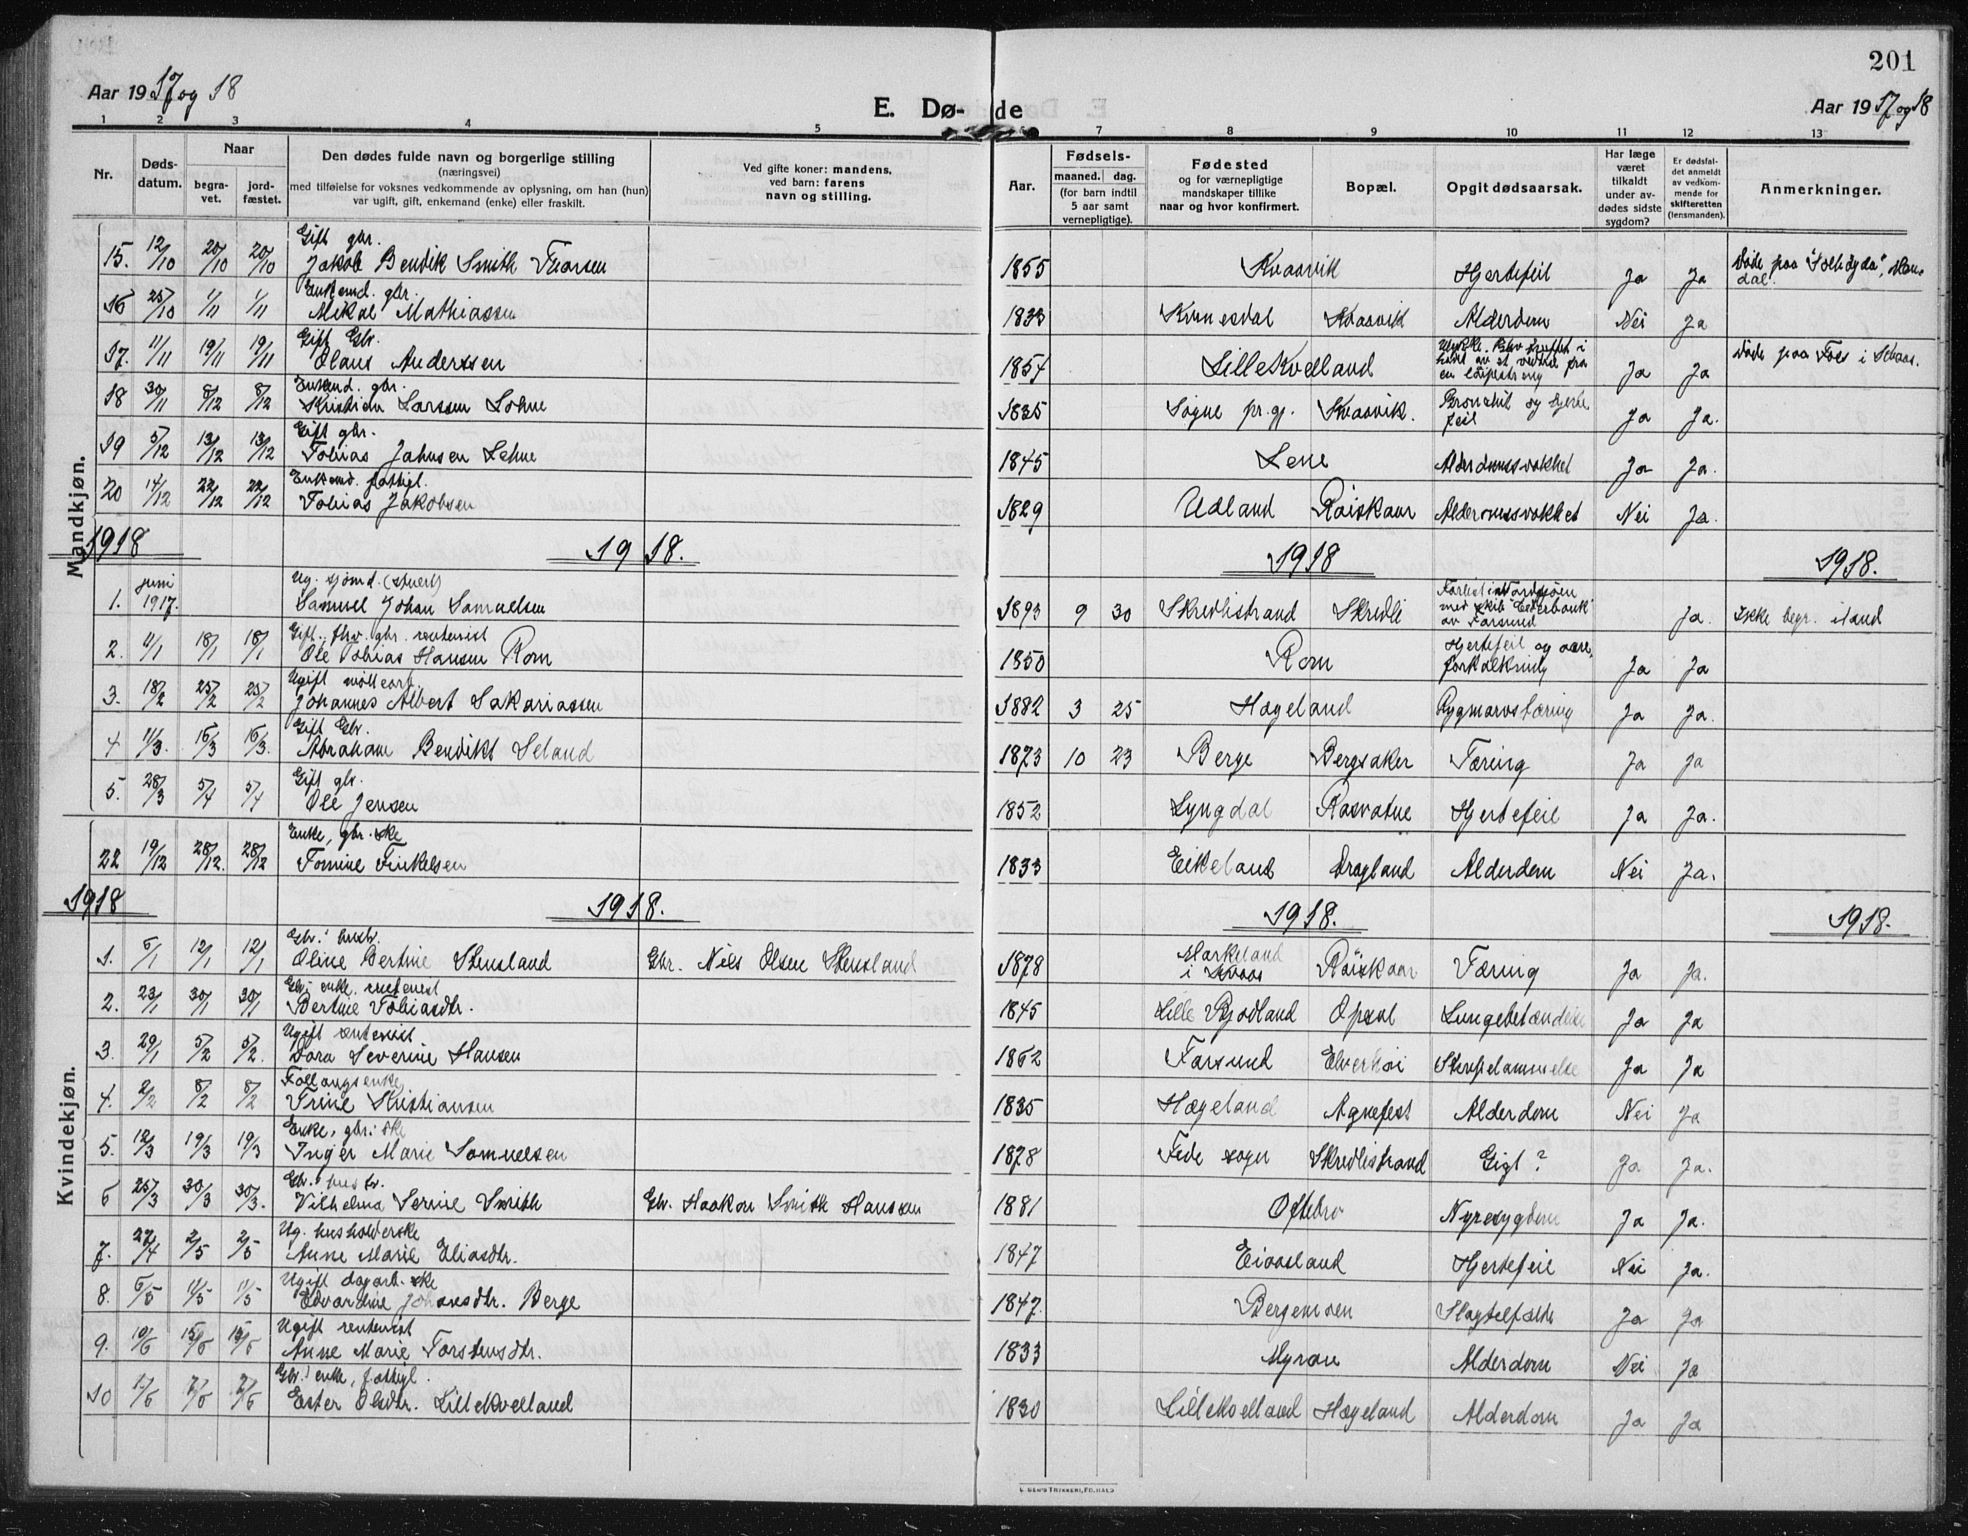 201
Aar 1917 og 18
E. Dø-
de
Aar 1917 og 18
1 2 3 4 5 6 7 8 9 10 11 12 13
Nr.
Døds-
datum.
Naar
begra-
vet.
jord-
fæstet.
Den dødes fulde navn og borgerlige stilling
(næringsvei)
med tilføielse for voksnes vedkommende av oplysning, om han (hun)
var ugift, gift, enkemand (enke) eller fraskilt.
Ved gifte koner: mandens,
ved barn: farens
navn og stilling.
Aar.
Fødsels-
maaned. dag.
(for barn indtil
5 aar samt
vernepligtige).
Fødested
og for værnepligtige
mandskaper tillike
naar og hvor konfirmert.
Bopæl.
Opgit dødsaarsak.
Har læge
været
tilkaldt
under av-
dødes sidste
sygdom?
Er dødsfal-
det anmeldt
av vedkom-
mende for
skifteretten
(lensmanden).
Anmerkninger.
Mandkjøn.
Gift gbr.
15. 12/10 20/10 20/10 Jakob Bendik Smith 1855 Kvaavik Hjertefeil Ja Ja Døde paa
Enkemd. gbr.
16 25/10 1/11 1/11 Mikal Mathiassen 1833 Kvinesdal Kvaavik Alderdom Nei Ja
Gift Gbr.
17. 11/11 19/11 19/11 Olaus Anderssen 1857 Lille Kvelland Ja Ja Døde paa Foss i Kvaas.
Enkemd. gbr.
18 30/11 8/12 8/12 Kristian Larssen Lohne 1835 Søgne pr.gj. Kvaavik. Bronchit og hjerte
feil Ja Ja.
Gift gbr.
19 5/12 13/12 13/12 Tobias Jahnsen Lehne 1845 Lene Alderdomssvakhet Ja Ja.
Enkemd. fattigl.
20 14/12 22/12 22/12 Tobias Jakobsen 1829 Udland Røiskaar Alderdomssvakhet Nei Ja.
1918 1918. 1918 1918.
Ug. sjømd. (stuert)
1. juni 1917. Samuel Johan Samuelsen 1893 9 30 Skredlistrand Skredli Forlist i Nordsjøen
med skib "Ederbank"
av Farsund Ja. Ikke begr. iland
Gift, fhv. gbr. rentenist
2. 11/1 18/1 18/1 Ole Tobias Hansen Rom 1850 Rom Hjertefeil og aare-
forkalkning Ja Ja
Ugift
3. 18/2 25/2 25/2 Johannes Albert Sakariassen 1882 3 25 Hægeland Rygmarvstæring Ja Ja.
Gift Gbr.
4 11/3. 16/3 16/3. Abraham Bendikt Seland 1873 10 23 Berge Bergsaker Tæring Ja Ja
Gift gbr.
5. 28/3 5/4 5/4 Ole Jensen 1852 Lyngdal Rosvatne Hjertefeil Ja Ja.
Kvindekjøn.
Enke, gbr.ske
22 19/12 28/12. 28/12 Tomine Tinkelsen 1833 Eikeland Drageland Alderdom Nei Ja.
1918 1918. 1918. 1918.
Gbr. hustr.
1. 6/1 12/1 12/1 Oline Bertine Stensland Gbr. Niels Olsen Stensland 1878 Harkeland
i Kvaas Røiskaar Tæring Ja Ja.
Gbr. enke. rentenist
2. 23/1 30/1 30/1 Bertine Tobiasdtr. 1845 Lille Rjodland Opsal Lungebetændelse Ja Ja
Ugift rentenist
3. 29/1 5/2 5/2. Dora Severine Hansen 1862 Farsund Elverhøi Ja Ja
enke
4. 2/2 8/2 8/2 Trine Kristiansen 1835 Hægeland Agnefest Alderdom Nei Ja
Enke, gbr.ske
5. 12/3 19/3 19/3 Inger Marie Samuelsen 1878 Fede sogn Skredlistrand Gigt? Ja Ja.
Gbr. hustr.
6 25/3 30/3 30/3. Vilhelma Serine Smith Gbr. Haakon Smith Hanssen 1881 Oftebro Nyresygdom Ja Ja.
Ug. husholderske
7. 27/4 2/5 2/5 Anne Marie Eliasdtr. 1847 Eiaasland Hjertefeil Nei Ja.
Ugift dagarb.ske
8. 6/5 11/5 11/5 Edvardine Johansdtr. Berge 1847. Bergemoen Slagtilfælde Ja Ja
Ugift rentenist
9. 10/6 15/6 15/6 Anne Marie Torstensdtr. 1833 Myran Alderdom Nei Ja
Gbr. enke, fattigl.
10 1/6 7/6 7/6 Ester Olsdtr. Lillekvelland 1830 Lillekvelland Hægeland Alderdom Ja Ja